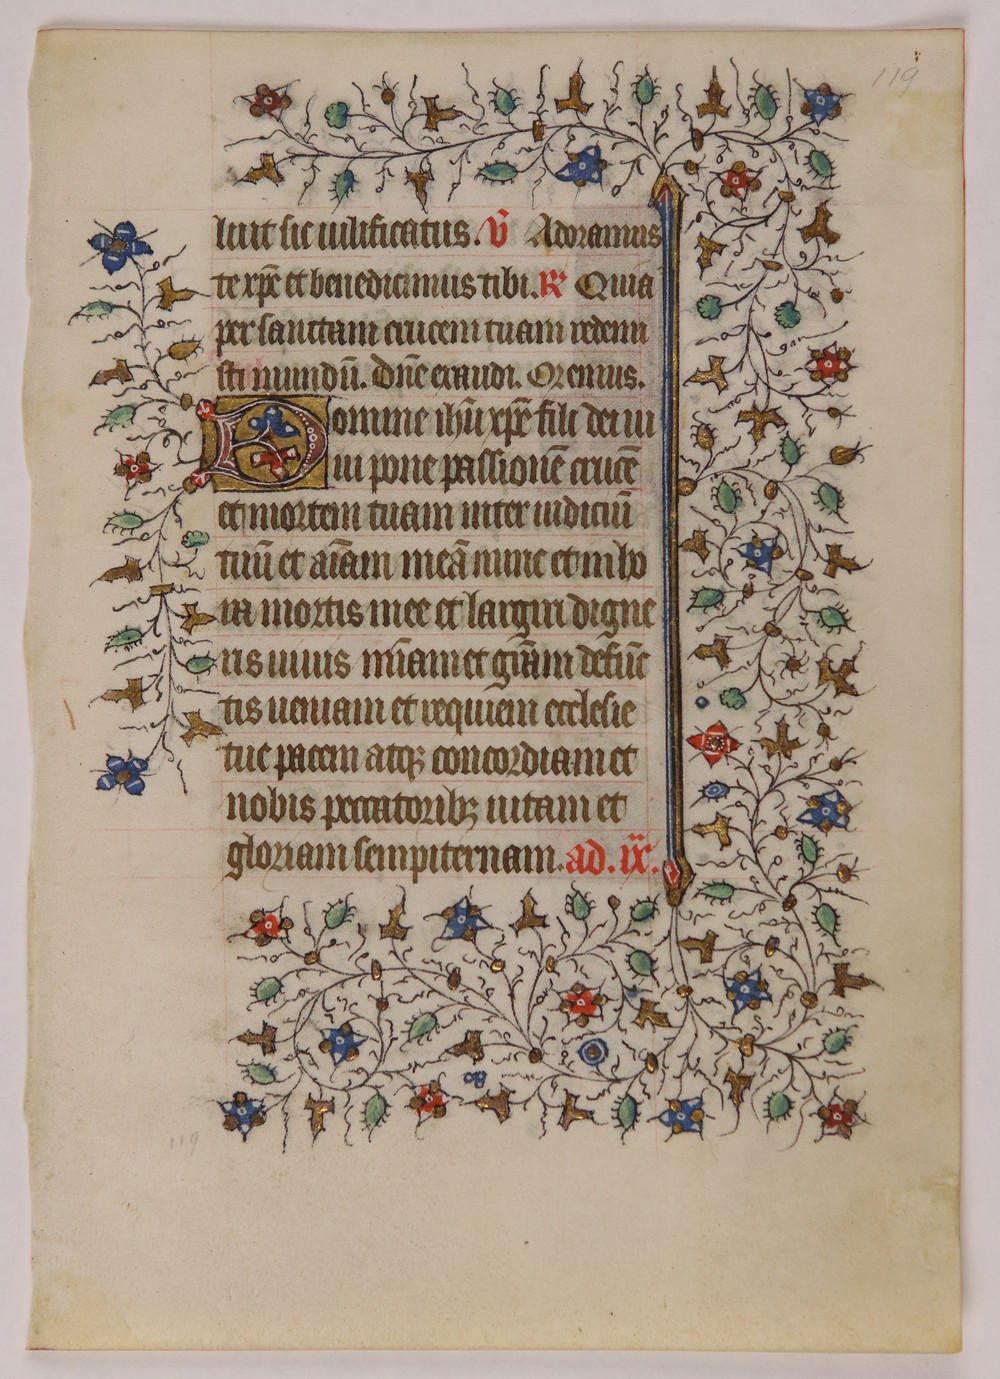 119
luit sic uilificatus. V̄ Adoramus
te xp̄e et benedicimus tibi. R̄ Quia
per sanctam crucem tuam redemi
sti mundū. Dn̄e exaudi. Oremus.
Domine ihū xp̄e fili dei ui
ui pone passionē crucē
et mortem tuam inter iudiciū
tuū et aīam meā nunc et in ho
ra mortis mee et largiri digne
ris uiuis mīam et grām defunc
tis ueniam et requiem ecclesie
tue pacem atqꝫ concordiam et
nobis peccatoribꝫ uitam et
gloriam sempiternam. ad. ix.
119